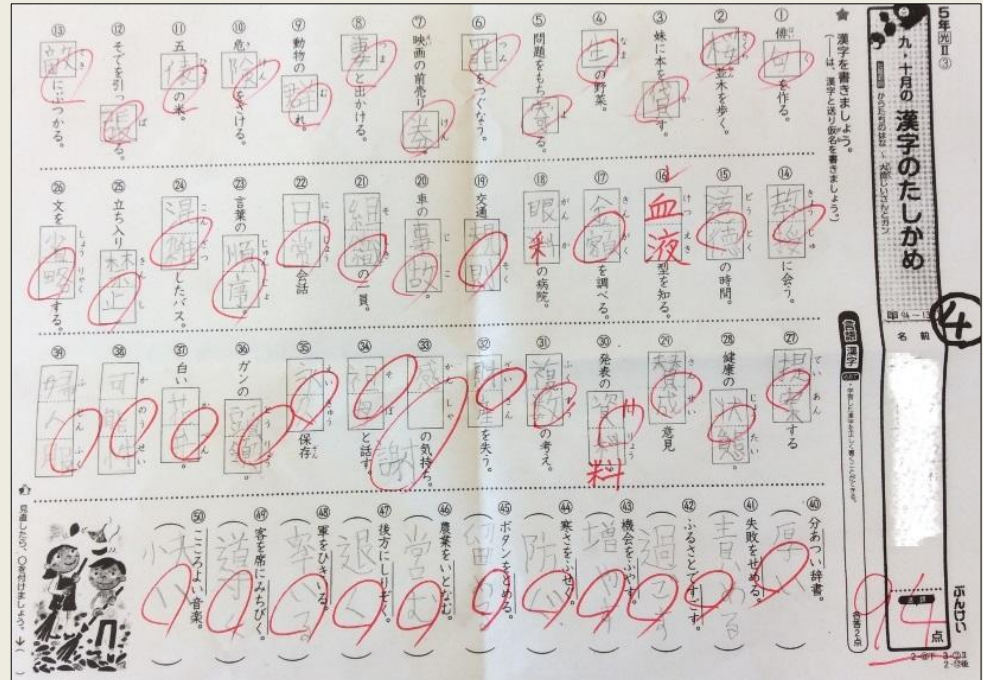 5年 光Ⅱ ③
九・十月の 漢字のたしかめ
ぶんけい
名前
94点
各2点
★ 漢字を書きましょう。
(――は、漢字と送り仮名を書きましょう。)
① 俳句を作る。
② 桜並木を歩く。
③ 妹に本を貸す。
④ 生の野菜。
⑤ 問題をもち寄る
⑥ 罪をつぐなう。
⑦ 映画の前売り券。
⑧ 妻と出かける。
⑨ 動物の群れ。
⑩ 危険をさける。
⑪ 五俵の米。
⑫ そでを引っ張る。
⑬ 敵にぶつかる。
⑭ に会う。
⑮ 道徳の時間。
⑯ 血液型を知る。
⑰ 金額を調べる。
⑱ 眼科の病院。
⑲ 交通規則
⑳ 車の事故。
㉑ 組織の一員。
㉒ 日常会話
㉓ 言葉の順序。
㉔ 混雑したバス。
㉕ 立ち入り禁止
㉖ 文を省略する。
㉗ 提案する
㉘ 健康の状態。
㉙ 賛成意見
㉚ 発表の資料 料
㉛ 複数の考え。
㉜ 財産を失う。
㉝ 感謝の気持ち。
㉞ 祖母と話す。
㉟ 永久保存
㊱ ガンの頭領
㊲ 白い花弁。
㊳ 可能性
㊴ 婦人服
㊵ 分あつい辞書。
厚い
㊶ 失敗をせめる。
責める
㊷ ふるさとですごす。
過ごす
㊸ 機会をふやす。
増やす
㊹ 寒さをふせぐ。
防ぐ
㊺ ボタンをとめる。
留める
㊻ 農業をいとなむ。
営む
㊼ 後方にしりぞく。
退く
㊽ 軍をひきいる。
率いる
㊾ 客を席にみちびく。
導く
㊿ こころよい音楽。
快い
見直したら、○を付けましょう。→( )